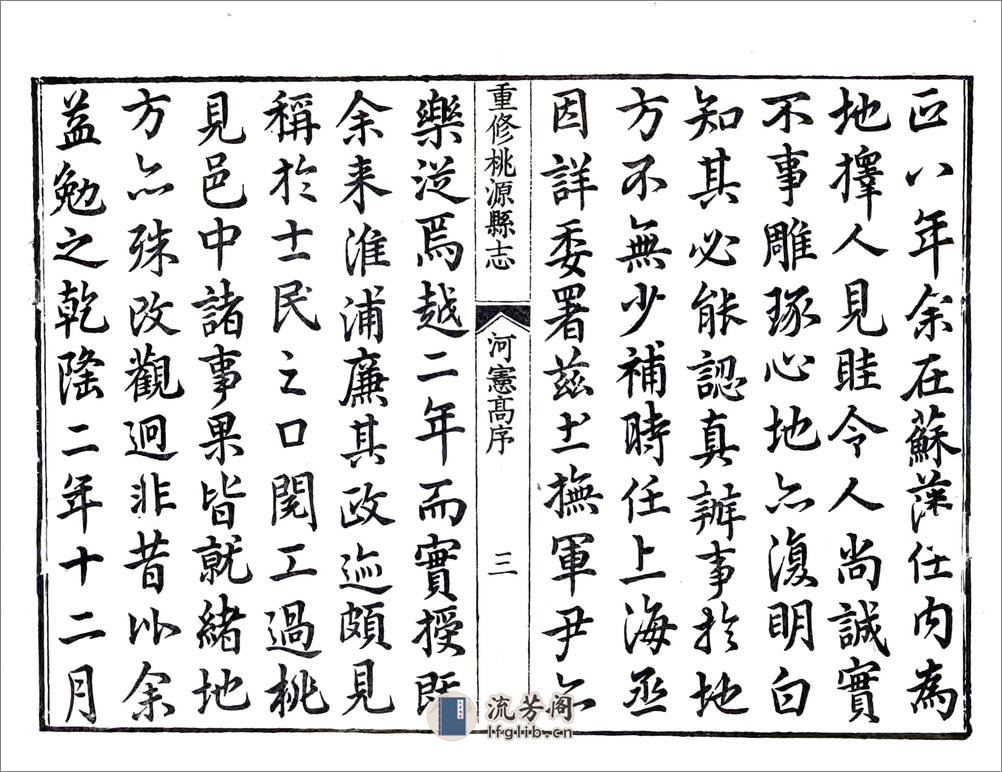 正八年余在蘇藩任內為
地擇人見眭令人尚誠實
不事雕琢心地亦復明白
知其必能認真辦事於地
方不無少補時任上海丞
因詳委署茲土撫軍尹亦
重修桃源縣志 河憲高序 三
樂從焉越二年而實授旣
余来淮浦廉其政迹頗見
稱於士民之口閱工過桃
見邑中諸事果皆就緒地
方亦殊改觀迥非昔以余
益勉之乾隆二年十二月
流芳阁
lfglib.cn